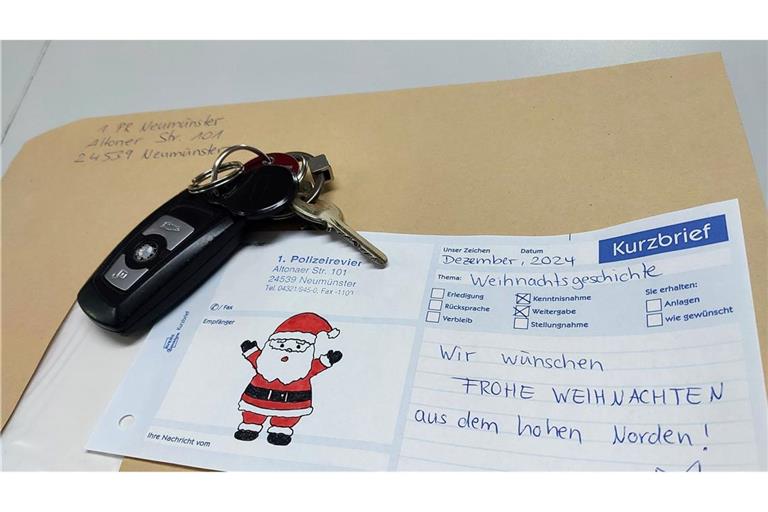 1. PR Neumünster
Altonaer Str. 101
24539 Neumünster
1. Polizeirevier
Altonaer Str. 101
24539 Neumünster
Tel. 04321/945-0, Fax -1103
✆/ Fax
Empfänger
Ihre Nachricht vom
Kurzbrief
Unser Zeichen Datum
Dezember, 2024
Kurzbrief
Thema: Weihnachtsgeschichte
Erledigung
Rücksprache
Verbleib
Kenntnisnahme
Weitergabe
Stellungnahme
Sie erhalten:
Anlagen
wie gewünscht
Wir wünschen
FROHE WEIHNACHTEN
aus dem hohen Norden!